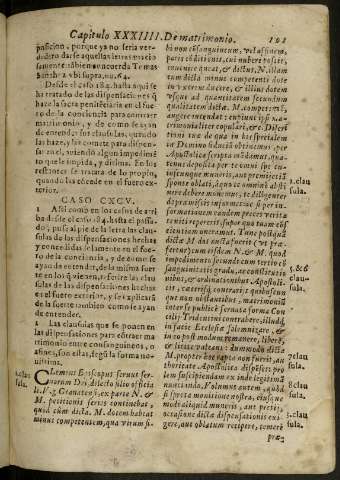 Capitulo XXXIIII. De matrimonio. 101
posicion, porque ya no seria verdadero
darse aquellas letras
Sanchez vbi supra, nu. 64.
Desde el caso 184. hasta aqui se
ha tratado de las dispensaciones q̃
haze la sacra penitẽciaria en el fuero
de la conciencia para contraer
matrimonio, y de como se ayan
de entender sus clausulas, quando
las haze, las comete para dispensar
en el, auiendo algun impedimento
que le impida, y dirima. En los
restantes se tratara de lo propio,
quando las cõcede en el fuero exterior.
CASO CXCV.
1 Assi como en los casos de arriba
desde el caso 184. hasta el passado,
puse al pie de la letra las clausulas
de las dispensaciones hechas
y concedidas solamente en el fuero
de la conciencia, y de como se
ayan de entender, de la misma suerte
en los q̃ vienen, referire las clausulas
de las dispensaciones hechas
en el fuero exterior, y se explicarà
de la suerte tambien como se ayan
de entender.
2 Las clausulas que se ponen en
las dispensaciones para côtraer matrimonio
entre consanguineos, o
afines, son estas, segũ la forma nouissima.
1. clausula.
CLemens Episcopus seruus seruorum
Dei, dilecto filio officiali
V. g. Granatensi, ex parte N. &
M. petitionis series continebat,
quod cum dicta. M. dotem habeat
minus competentem, qua virum si-
bi non cõsanguineum, vel affinem,
paris cõditionis, cui nubere possit,
inuenire nequeat, & dictus, N. illam
cum dicta minus competenti dote
in vxorem ducere, & illius dotem
vsque ad quantitatem secundum
qualitatem dicta. M. competentem,
augere intendat: cupiunt
matrimonialiter copulari, &c. Discretioni
tuæ de qua in his specialem
in Domino fiduciã obtinemus, per
Apostolica scripta mãdamus, quatenus
deposita per te omni spe cuiuscunque
muneris, aut præmij etiã
sponte oblati, à quo te omnino abstinere
debere monemus, te diligenter
de præmissis informes: & si per informationem
eandem preces veritate
niti repereris super quo tuam conscientiam
oneramus. Tunc postquã
dicta M dos aucta fuerit (vt præfertur)
cum eisdem N. & M. quod
impedimento secundo cum tertio cõsanguinitatis
gradu, ac constitutionibus,
& ordinationibus Apostolicis,
cæterisq́ contrarijs quibuscunque
non obstantibus, matrimoniũ
inter se publicè seruata forma Concilij
Tridentini contrahere, illudq́
in facie Ecclesiæ solemnizare, &
in eo postmodum remanere, liberè,
& licitè valeant: dummodo dicta
M. propter hoc rapta non fuerit, authoritate
Apostolica dispenses prolem
suscipiendam ex inde legitimã
nunciando, Volumus autem, quòd
si spreta monitione nostra, eiusque
modi aliquid muneris, aut premij,
occasione dictæ dispensationis exigere,
aut oblatum recipere, temerè
2. clausula.
5. & 6. clausula.
7. clausula.
8. clausula
præ-